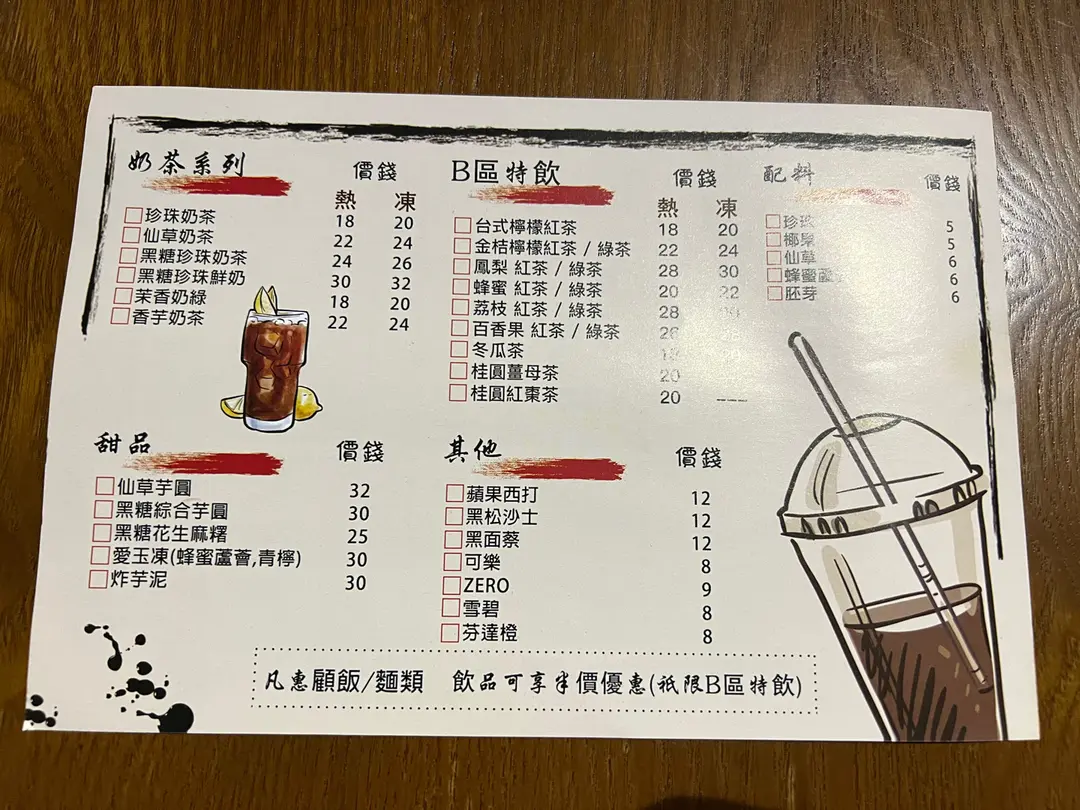 奶茶系列 價錢
熱 凍
珍珠奶茶 18 20
仙草奶茶 22 24
黑糖珍珠奶茶 24 26
黑糖珍珠鮮奶 30 32
茉香奶綠 18 20
香芋奶茶 22 24
B區特飲 價錢
熱 凍
台式檸檬紅茶 18 20
金桔檸檬紅茶 / 綠茶 22 24
鳳梨 紅茶 / 綠茶 28 30
蜂蜜 紅茶 / 綠茶 20 22
荔枝 紅茶 / 綠茶 28
百香果 紅茶 / 綠茶
冬瓜茶
桂圓薑母茶 20
桂圓紅棗茶 20
配料 價錢
珍珠 5
椰果 5
仙草 6
蜂蜜蘆 6
胚芽 6
甜品 價錢
仙草芋圓 32
黑糖綜合芋圓 30
黑糖花生麻糬 25
愛玉凍(蜂蜜蘆薈,青檸) 30
炸芋泥 30
其他 價錢
蘋果西打 12
黑松沙士 12
黑面蔡 12
可樂 8
ZERO 9
雪碧 8
芬達橙 8
凡惠顧飯/麵類 飲品可享半價優惠(祇限B區特飲)